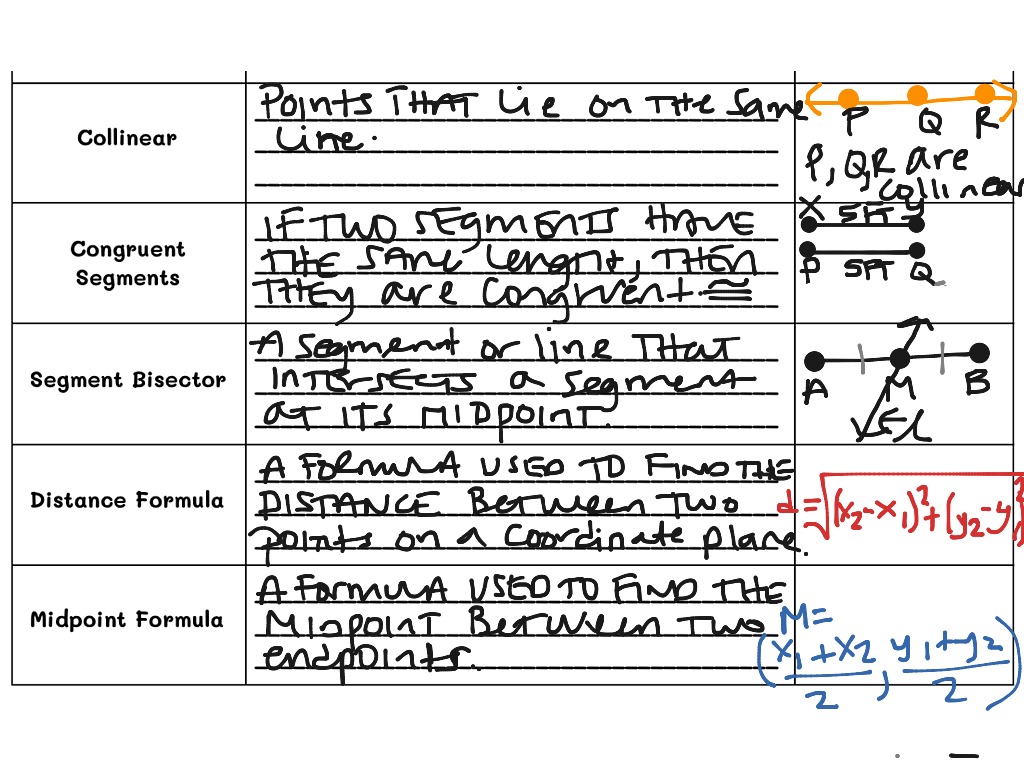 Collinear
Points THAT Lie on THE Same
Line.
P Q R
P, Q, R are
collinear
Congruent
Segments
IF TWO SEgmENTS HAVE
THE SAME Length, THEN
THEy are Congruent. ≅
X 5FT Y
P 5FT Q
Segment Bisector
A Segment or line THAT
INTERSECTS a Segment
AT ITS MIDPOINT.
A M B
Distance Formula
A FORMULA USED TO FIND THE
DISTANCE Between Two
points on a Coordinate plane.
d=√(x₂-x₁)²+(y₂-y₁)²
Midpoint Formula
A FormulA USED TO FIND THE
MIDPOINT BETWEEN TWO
endpoints.
M=
(x₁+x₂/2, y₁+y₂/2)